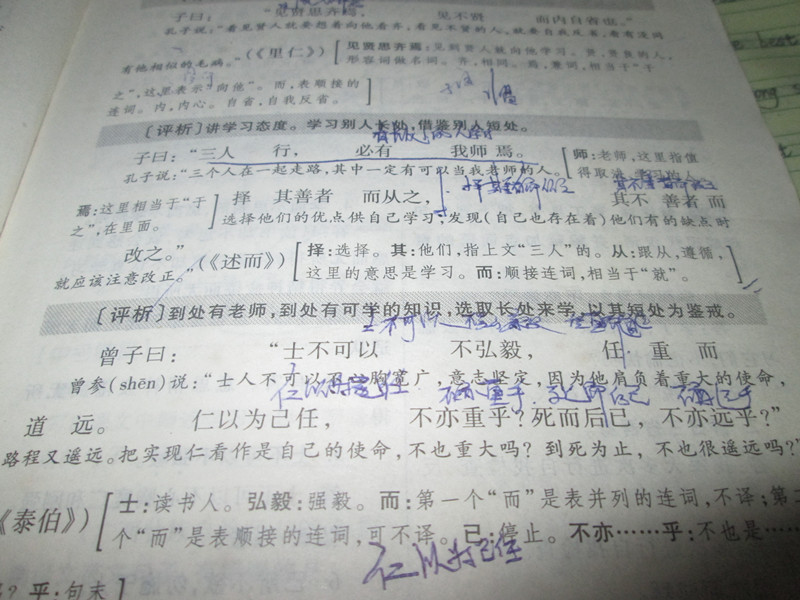 子曰：“见贤思齐焉， 见不贤 而内自省也。”
孔子说：“看见贤人就要想着向他看齐，看见不贤的人，就要自我反省，看有没同
有他相似的毛病。”（《里仁》） 见贤思齐焉：见到贤人就向他学习。贤，贤良的人，
形容词做名词。齐，相同。焉，兼词，相当于“于
之”，这里表示“向他”。而，表顺接的
连词。内，内心。自省，自我反省。
［评析］讲学习态度。学习别人长处，借鉴别人短处。
子曰：“三人 行， 必有 我师焉。
孔子说：“三个人在一起走路，其中一定有可以当我老师的人。 师：老师，这里指值
得取法、学习的人。
焉：这里相当于“于
之”，在里面。
择 其善者 而从之， 其不善者而
选择他们的优点供自己学习，发现（自己也存在着）他们有的缺点时
改之。”
就应该注意改正。”（《述而》） 择：选择。其：他们，指上文“三人”的。从：跟从，遵循，
这里的意思是学习。而：顺接连词，相当于“就”。
［评析］到处有老师，到处有可学的知识，选取长处来学，以其短处为鉴戒。
士不可以
曾子曰： “士不可以 不弘毅， 任重而
曾参（shēn）说：“士人不可以不心胸宽广，意志坚定，因为他肩负着重大的使命，
道远。 仁以为己任， 不亦重乎？死而后已，不亦远乎？”
路程又遥远。把实现仁看作是自己的使命，不也重大吗？到死为止，不也很遥远吗？”
《泰伯》） 士：读书人。弘毅：强毅。而：第一个“而”是表并列的连词，不译；第二
个“而”是表顺接的连词，可不译。已：停止。不亦……乎：不也是……
吗？乎：句末
仁以为己任